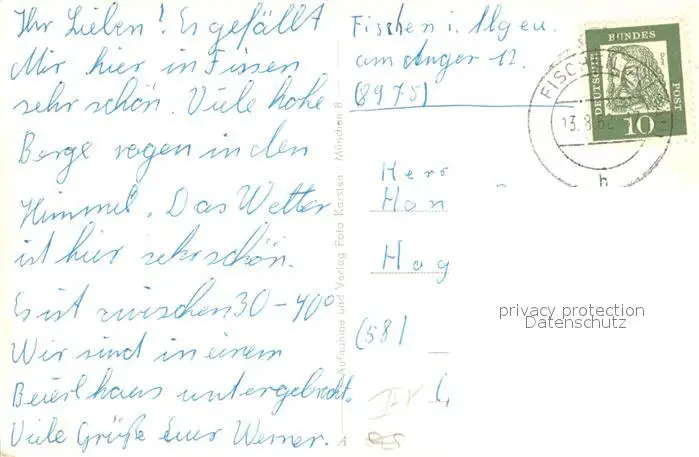 Ihr Lieben! Es gefällt
Mir hier in Fissen
sehr schön. Viele hohe
Berge ragen in den
Himmel. Das Wetter
ist hier sehr schön.
Es ist zwischen 30 - 40°
Wir sind in einem
haus untergebracht.
Viele Grüße Euer Werner.
Aufnahme und Verlag Foto Karsten München 8
Fischen i. Allgeu.
am Anger 12.
(8975)
DEUTSCHE BUNDES POST
10
FISCHEN
13.8.62
h
Herr
Han
Hag
(581
privacy protection
Datenschutz